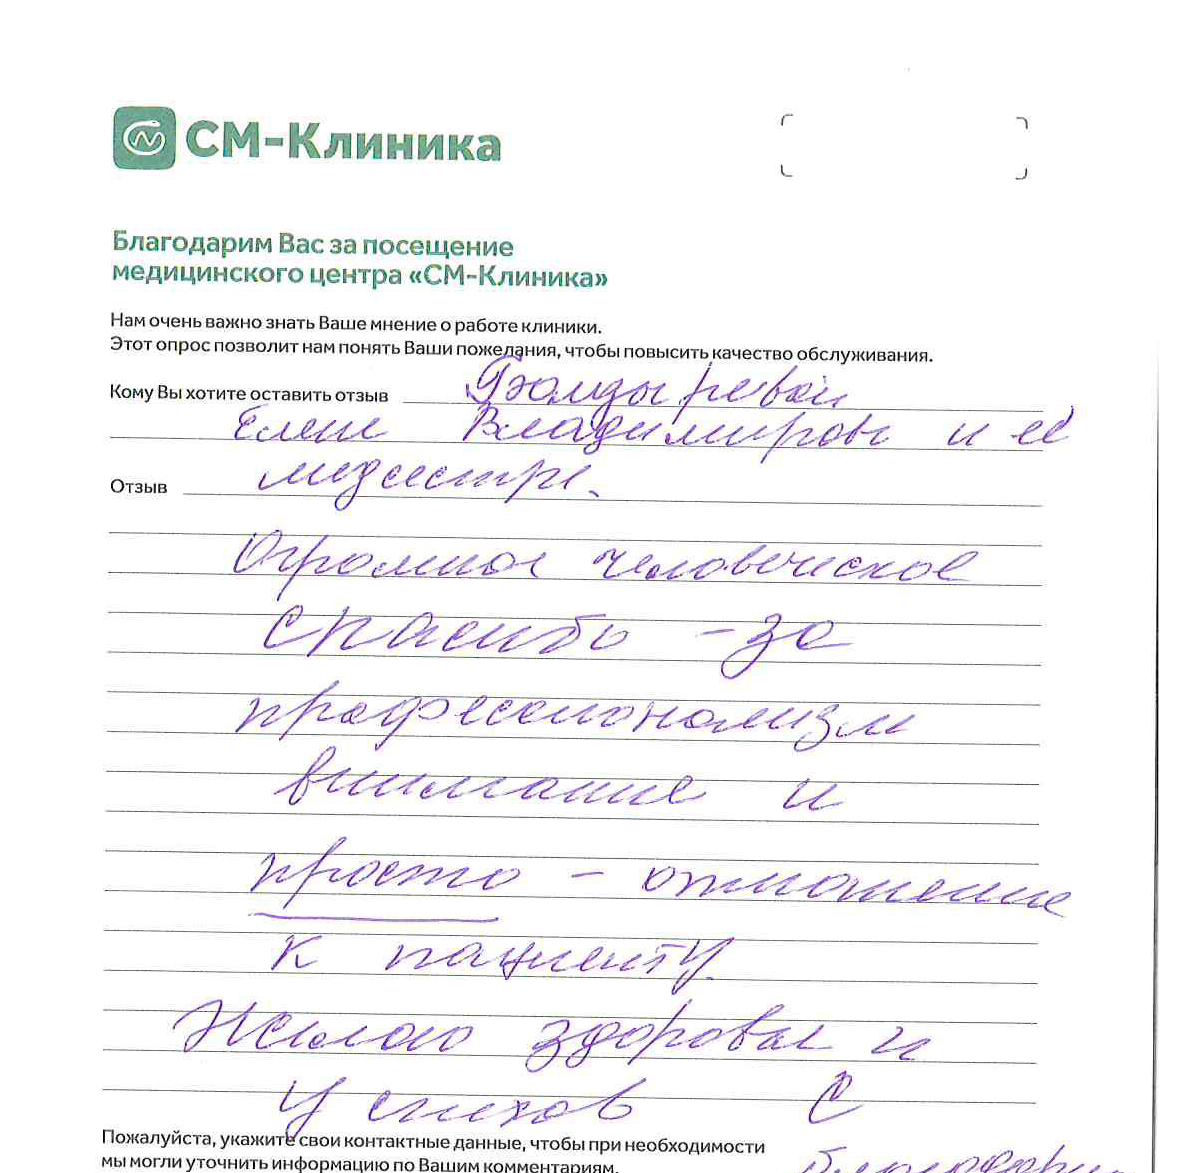 СМ-Клиника
Благодарим Вас за посещение
медицинского центра «СМ-Клиника»
Нам очень важно знать Ваше мнение о работе клиники.
Этот опрос позволит нам понять Ваши пожелания, чтобы повысить качество обслуживания.
Кому Вы хотите оставить отзыв
Елене Владимировне и её
Отзыв медсестре.
Огромное человеческое
спасибо - за
профессионализм
внимание и
просто - отношение
к пациенту.
Желаю здоровья и
успехов С
Пожалуйста, укажите свои контактные данные, чтобы при необходимости
мы могли уточнить информацию по Вашим комментариям.